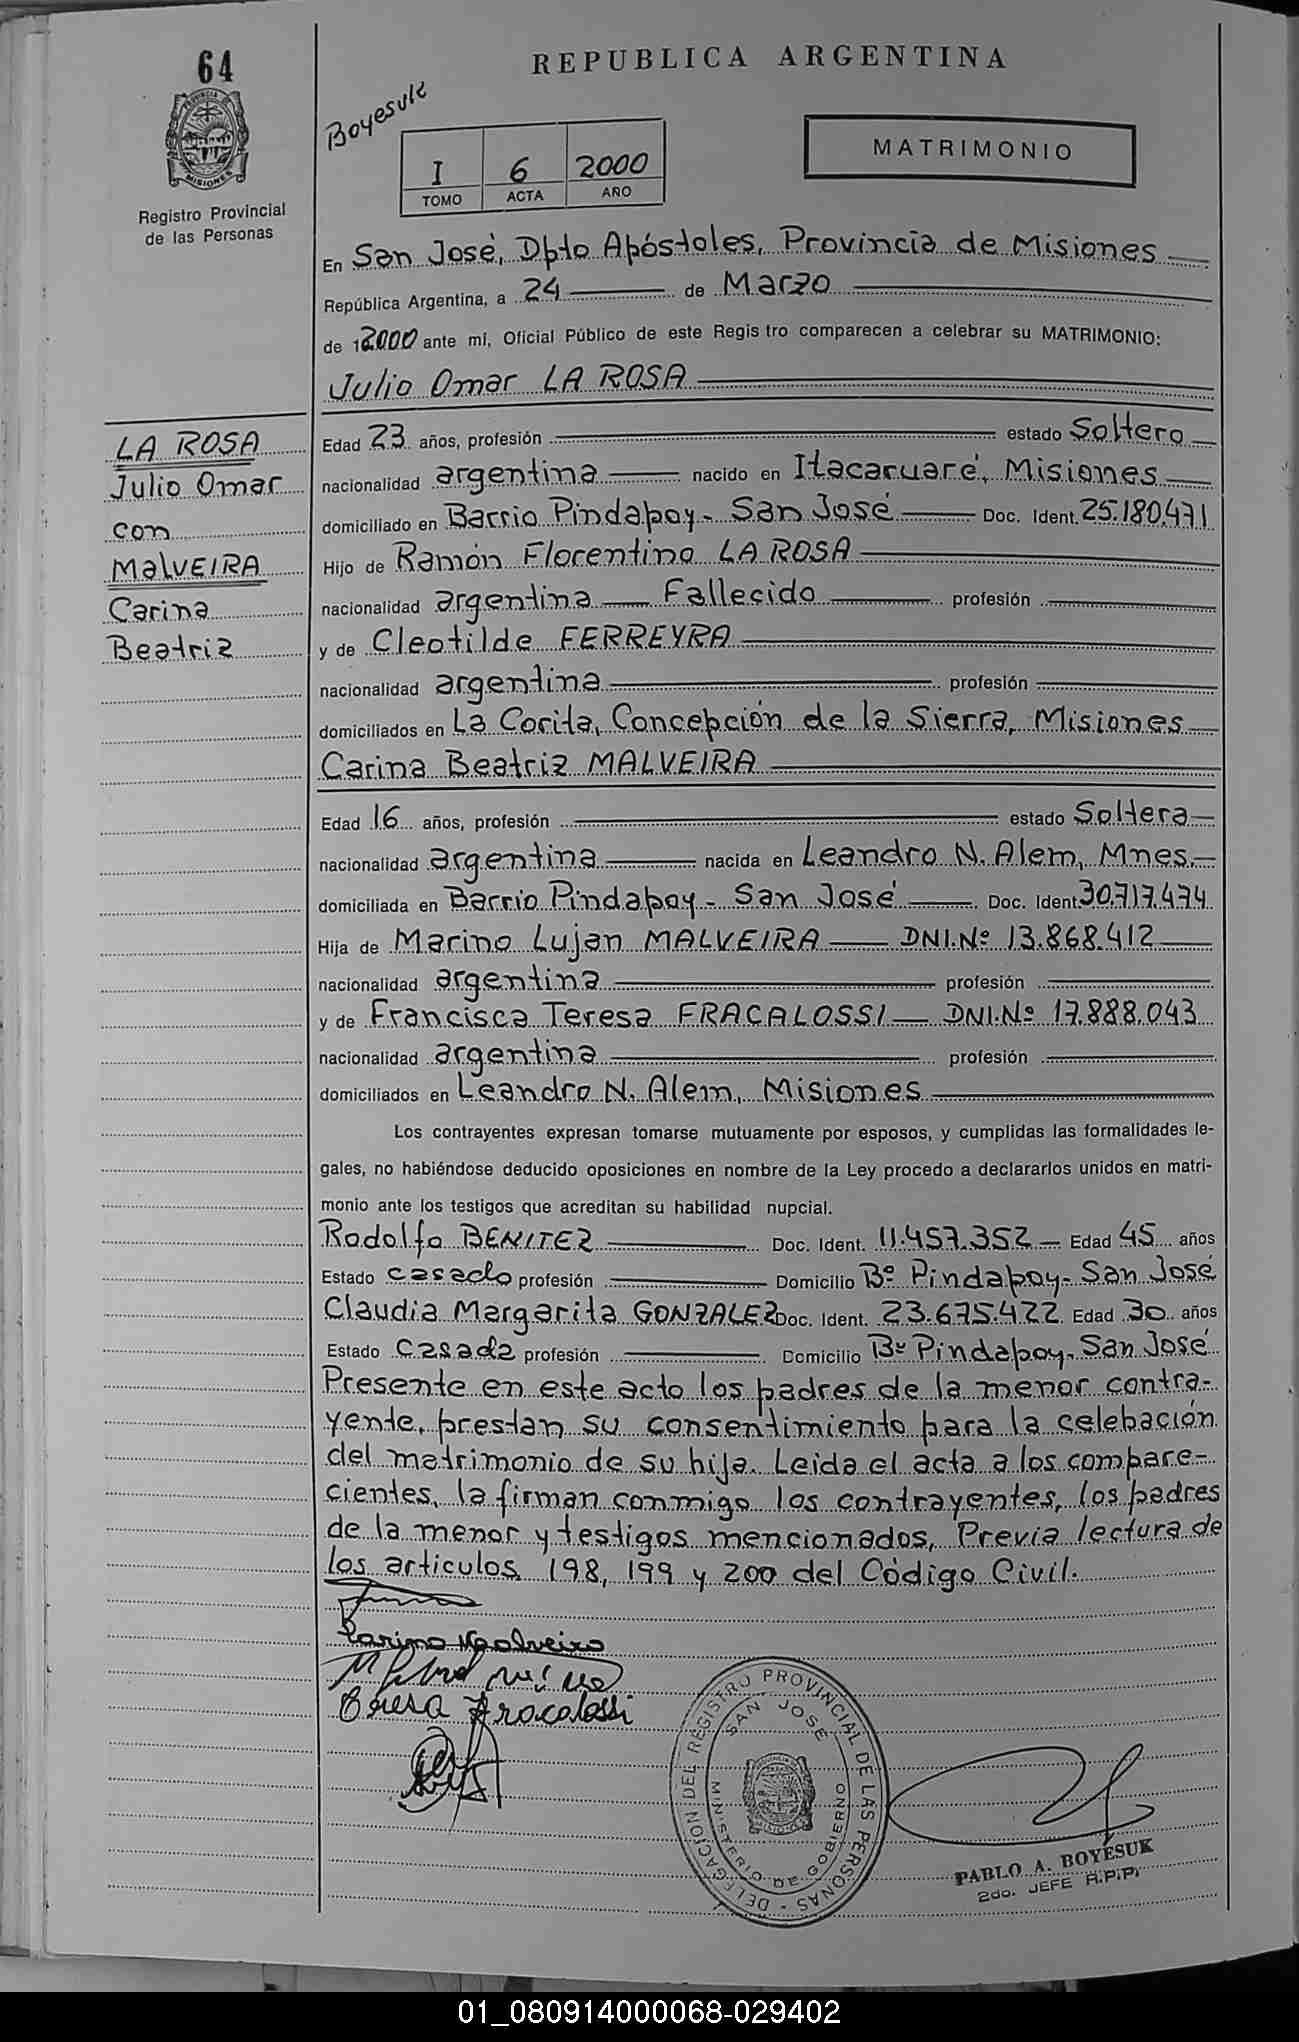 64
REPUBLICA ARGENTINA
Boyesuk
MATRIMONIO
I 6 2000
TOMO ACTA AÑO
MISIONES
Registro Provincial
de las Personas
En San José, Dpto Apóstoles, Provincia de Misiones
República Argentina, a 24 de Marzo
de 12000 ante mí, Oficial Público de este Regis tro comparecen a celebrar su MATRIMONIO:
Julio Omar LA ROSA
LA ROSA
Julio Omar
con
MALVEIRA
Carina
Beatriz
Edad 23 años, profesión estado Soltero
nacionalidad argentina nacido en Itacaruaré, Misiones
domiciliado en Barrio Pindapoy - San José Doc. Ident. 25.180.471
Hijo de Ramón Florentino LA ROSA
nacionalidad argentina Fallecido profesión
y de Cleotilde FERREYRA
nacionalidad argentina profesión
domiciliados en La Corita, Concepción de la Sierra, Misiones
Carina Beatriz MALVEIRA
Edad 16 años, profesión estado Soltera
nacionalidad argentina nacida en Leandro N. Alem, Mnes.
domiciliada en Barrio Pindapoy - San José Doc. Ident. 30.717.474
Hija de Marino Lujan MALVEIRA DNI.Nº 13.868.412
nacionalidad argentina profesión
y de Francisca Teresa FRACALOSSI DNI.Nº 17.888.043
nacionalidad argentina profesión
domiciliados en Leandro N. Alem, Misiones
Los contrayentes expresan tomarse mutuamente por esposos, y cumplidas las formalidades le-
gales, no habiéndose deducido oposiciones en nombre de la Ley procedo a declararlos unidos en matri-
monio ante los testigos que acreditan su habilidad nupcial.
Rodolfo BENITEZ Doc. Ident. 11.457.352 Edad 45 años
Estado casado profesión Domicilio Bº Pindapoy - San José
Claudia Margarita GONZALEZ Doc. Ident. 23.675.422 Edad 30 años
Estado casada profesión Domicilio Bº Pindapoy - San José
Presente en este acto los padres de la menor contra-
yente, prestan su consentimiento para la celebación
del matrimonio de su hija. Leida el acta a los compare-
cientes, la firman conmigo los contrayentes, los padres
de la menor y testigos mencionados, Previa lectura de
los articulos 198, 199 y 200 del Código Civil.
Teresa Fracalossi
DELEGACION DEL REGISTRO PROVINCIAL DE LAS PERSONAS -
SAN JOSE
MINISTERIO DE GOBIERNO
PABLO A. BOYESUK
2do. JEFE R.P.P.
01_080914000068-029402